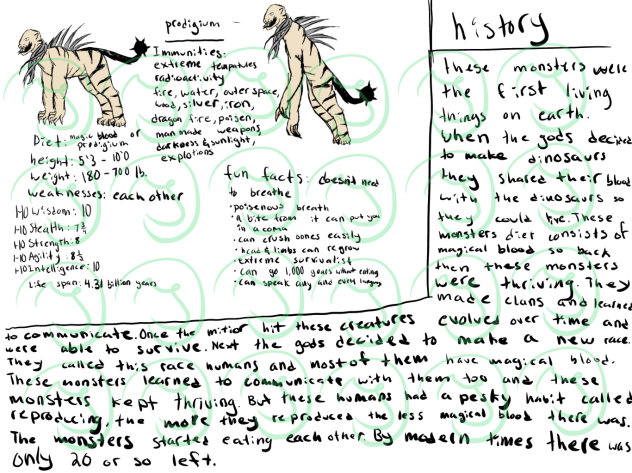 prodigium
Immunities:
extreme tempatures
radioactivity
fire, water, outerspace,
wood, silver, iron,
dragon fire, poisen,
man made weapons
darkness & sunlight,
explotions
Diet: magic blood or
prodigium
height: 5'3 - 10'0
weight: 180 - 700 lb.
weaknesses: each other
1-10 Wisdom: 10
1-10 Stealth: 7 3/4
1-10 Strength: 8
1-10 Agility: 8 1/2
1-10 Intelligence: 10
Life span: 4.31 billion years
fun facts: doesn't need
to breathe
• poisenous breath
• A bite from it can put you
in a coma
• can crush bones easily
• head & limbs can regrow
• extreme survivalist
• can go 1,000 years without eating
• can speak any and every language
history
These monsters were
the first living
things on earth.
when the gods decided
to make dinosaurs
they shared their blood
with the dinosaurs so
they could live. These
monsters diet consists of
magical blood so back
then these monsters
were thriving. They
made clans and learned
to communicate. Once the mitior hit these creatures evolved over time and
were able to survive. Next the gods decided to make a new race.
They called this race humans and most of them have magical blood.
These monsters learned to communicate with them too and these
monsters kept thriving. But these humans had a pesky habit called
reproducing, the more they reproduced the less magical blood there was.
The monsters started eating each other. By modern times there was
only 20 or so left.